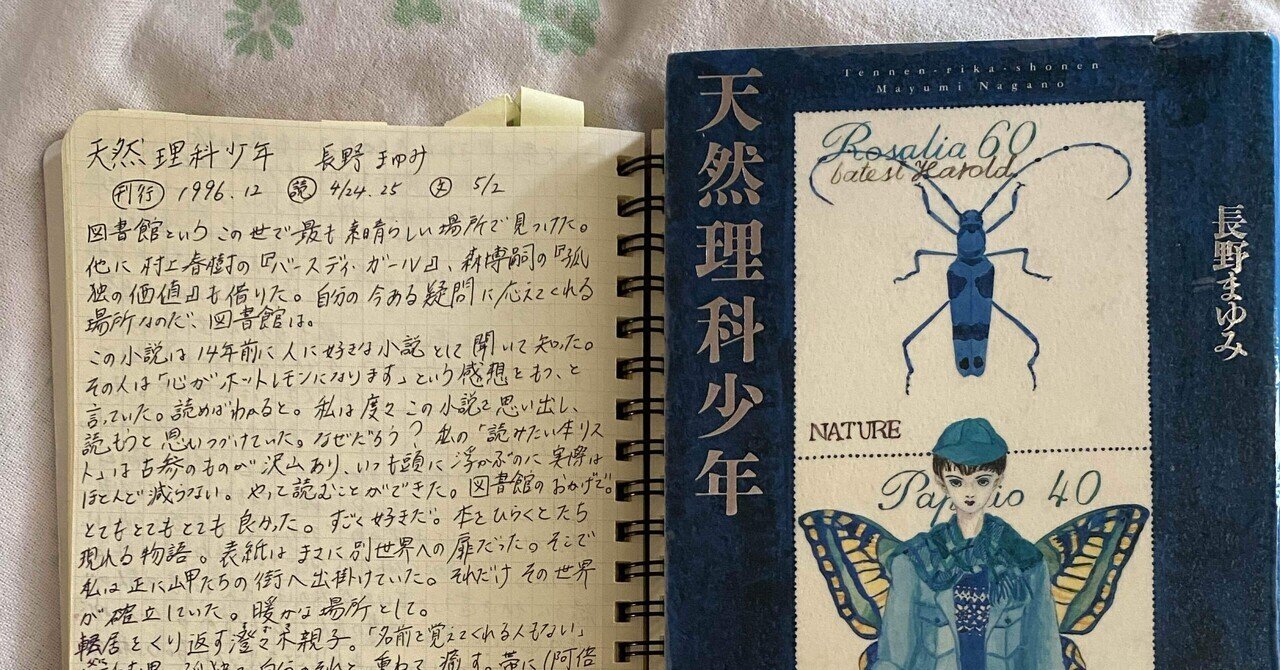 天然理科少年　長野まゆみ
刊行 1996.12 読 4/24.25 文 5/2
図書館というこの世で最も素晴らしい場所で見つけた。
他に村上春樹の『バースデイ・ガール』、森博嗣の『孤
独の価値』も借りた。自分の今ある疑問に応えてくれる
場所なのだ、図書館は。
この小説は14年前に人に好きな小説として聞いて知った。
その人は「心がホットレモンになります」という感想をもつ、と
言っていた。読めばわかると。私は度々この小説を思い出し、
読もうと思いつづけていた。なぜだろう？私の「読みたい本リス
ト」は古参のものが沢山あり、いつも頭に浮かぶのに実際は
ほとんど減らない。やっと読むことができた。図書館のおかげで。
とてもとてもとても良かった。すごく好きだ。本をひらくとたち
現れる物語。表紙はまさに別世界への扉だった。そこで
私は正に岬たちの街へ出掛けていた。それだけその世界
が確立していた。暖かな場所として。
転居をくり返す澄々木親子。「名前を覚えてくれる人もない」
重ねて 癒す。帯に（阿倍
天然理科少年
Tennen-rika-shonen
Mayumi Nagano
長野まゆみ
Rosalia 60
batesi Harold
NATURE
Papilio 40